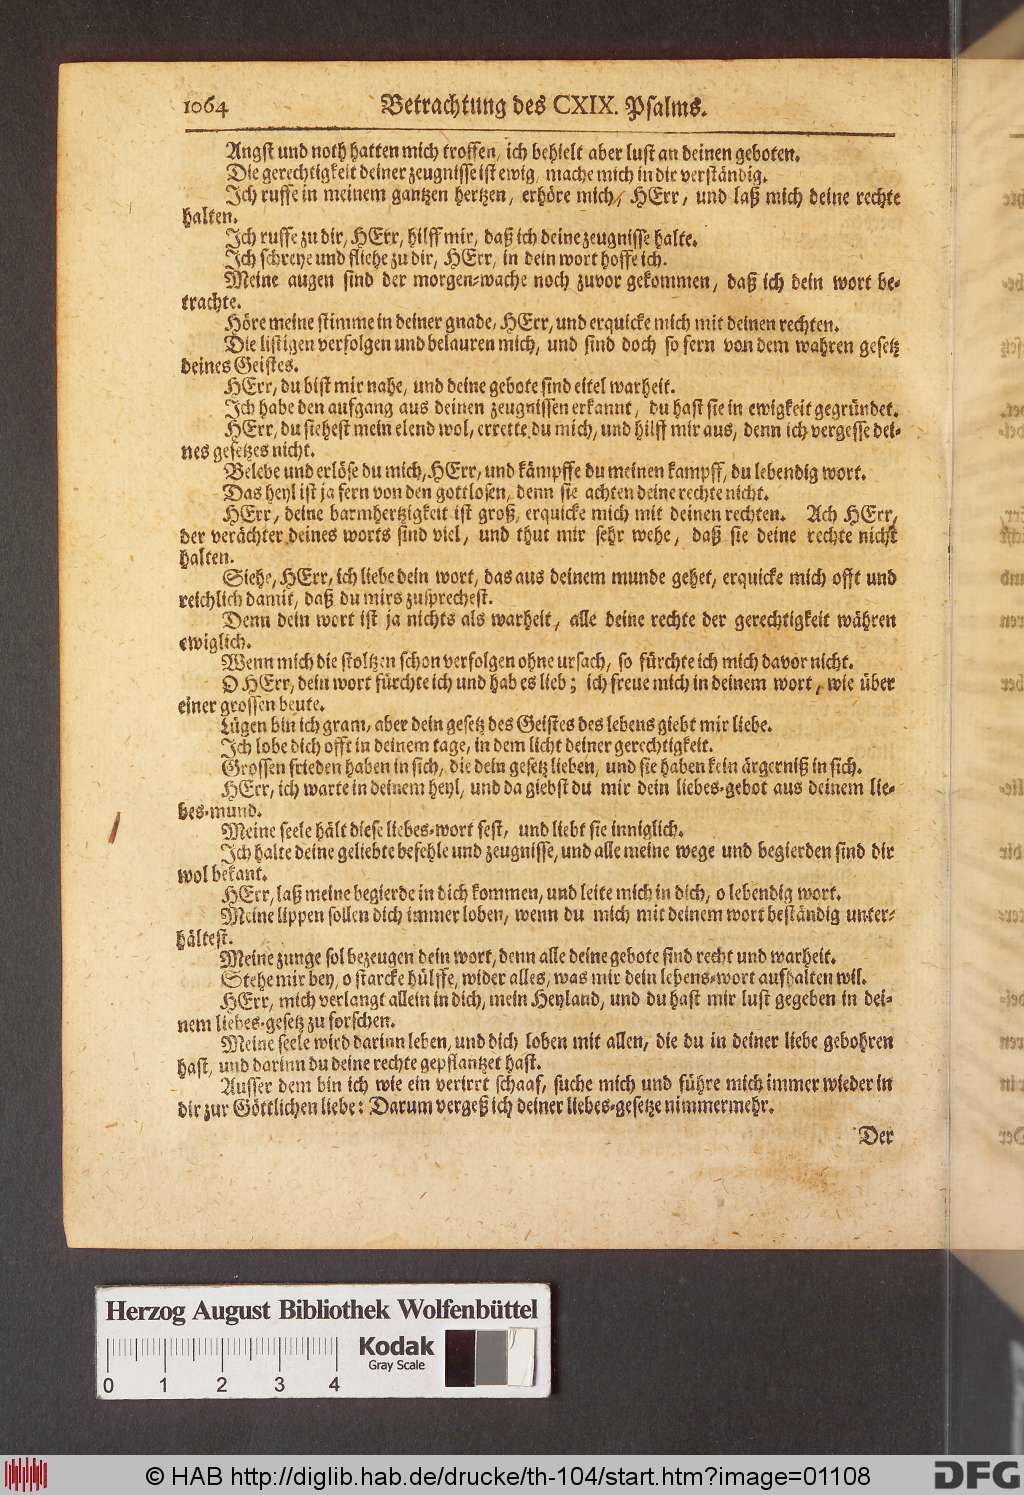 1064 Betrachtung des CXIX. Psalms.
Angst und noth hatten mich troffen, ich behielt aber lust an deinen geboten.
Die gerechtigkeit deiner zeugnisse ist ewig, mache mich in dir verständig.
Ich ruffe in meinem gantzen hertzen, erhöre mich, HErr, und laß mich deine rechte
halten.
Ich ruffe zu dir, HErr, hilff mir, daß ich deine zeugnisse halte.
Ich schreye und fliehe zu dir, HErr, in dein wort hoffe ich.
Meine augen sind der morgen-wache noch zuvor gekommen, daß ich dein wort be-
trachte.
Höre meine stimme in deiner gnade, HErr, und erquicke mich mit deinen rechten.
Die listigen verfolgen und belauren mich, und sind doch so fern von dem wahren gesetz
deines Geistes.
HErr, du bist mir nahe, und deine gebote sind eitel warheit.
Ich habe den aufgang aus deinen zeugnissen erkannt, du hast sie in ewigkeit gegründet.
HErr, du siehest mein elend wol, errette du mich, und hilff mir aus, denn ich vergesse dei-
nes gesetzes nicht.
Belebe und erlöse du mich, HErr, und kämpffe du meinen kampff, du lebendig wort.
Das heyl ist ja fern von den gottlosen, denn sie achten deine rechte nicht.
HErr, deine barmhertzigkeit ist groß, erquicke mich mit deinen rechten. Ach HErr,
der verächter deines worts sind viel, und thut mir sehr wehe, daß sie deine rechte nicht
halten.
Siehe, HErr, ich liebe dein wort, das aus deinem munde gehet, erquicke mich offt und
reichlich damit, daß du mirs zusprechest.
Denn dein wort ist ja nichts als warheit, alle deine rechte der gerechtigkeit währen
ewiglich.
Wenn mich die stoltzen schon verfolgen ohne ursach, so fürchte ich mich davor nicht.
O HErr, dein wort fürchte ich und hab es lieb; ich freue mich in deinem wort, wie über
einer grossen beute.
Lügen bin ich gram, aber dein gesetz des Geistes des lebens giebt mir liebe.
Ich lobe dich offt in deinem tage, in dem licht deiner gerechtigkeit.
Grossen frieden haben in sich, die dein gesetz lieben, und sie haben kein ärgerniß in sich.
HErr, ich warte in deinem heyl, und da giebst du mir dein liebes-gebot aus deinem lie-
bes-mund.
Meine seele hält diese liebes-wort fest, und liebt sie inniglich.
Ich halte deine geliebte befehle und zeugnisse, und alle meine wege und begierden sind dir
wol bekant.
HErr, laß meine begierde in dich kommen, und leite mich in dich, o lebendig wort.
Meine lippen sollen dich immer loben, wenn du mich mit deinem wort beständig unter-
hältest.
Meine zunge sol bezeugen dein wort, denn alle deine gebote sind recht und warheit.
Stehe mir bey, o starcke hülffe, wider alles, was mir dein lebens-wort aufhalten wil.
HErr, mich verlangt allein in dich, mein Heyland, und du hast mir lust gegeben in dei-
nem liebes-gesetz zu forschen.
Meine seele wird darinn leben, und dich loben mit allen, die du in deiner liebe gebohren
hast, und darinn du deine rechte gepflantzet hast.
Ausser dem bin ich wie ein verirrt schaaf, suche mich und führe mich immer wieder in
dir zur Göttlichen liebe: Darum vergeß ich deiner liebes-gesetze nimmermehr.
Der
Herzog August Bibliothek Wolfenbüttel
Kodak
Gray Scale
0 1 2 3 4
© HAB http://diglib.hab.de/drucke/th-104/start.htm?image=01108
DFG